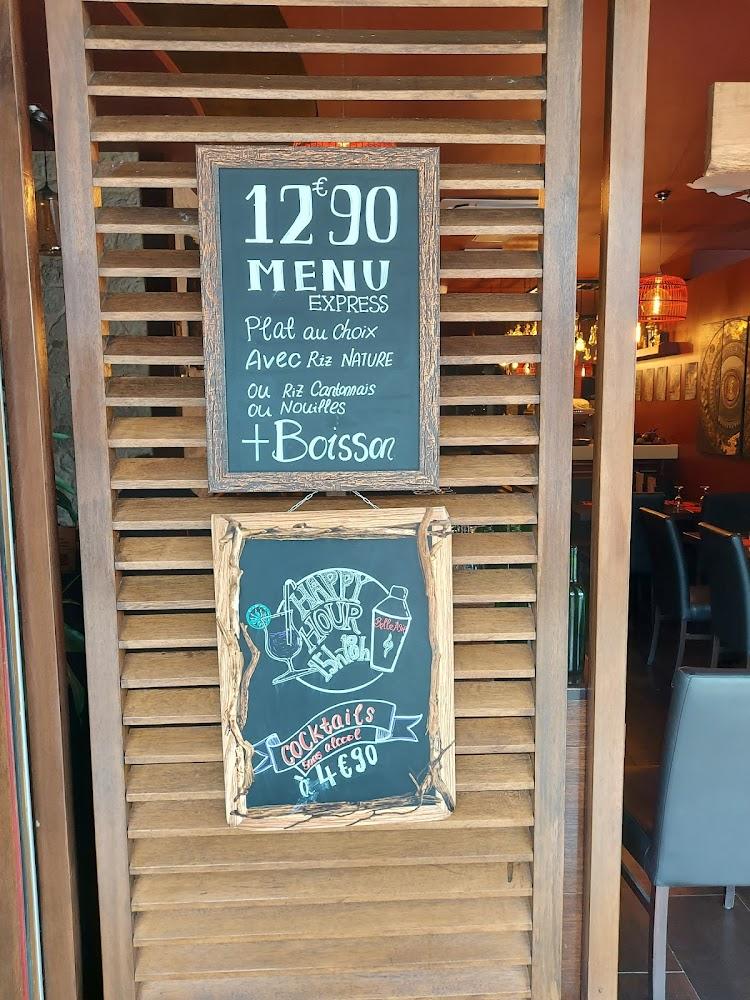 12€90
MENU
EXPRESS
Plat au choix
Avec Riz NATURE
ou Riz Cantonnais
ou Nouilles
+ Boisson
HAPPY
HOUR
15h 18h
Belle Asie
COCKtails
sans alcool
à 4€90